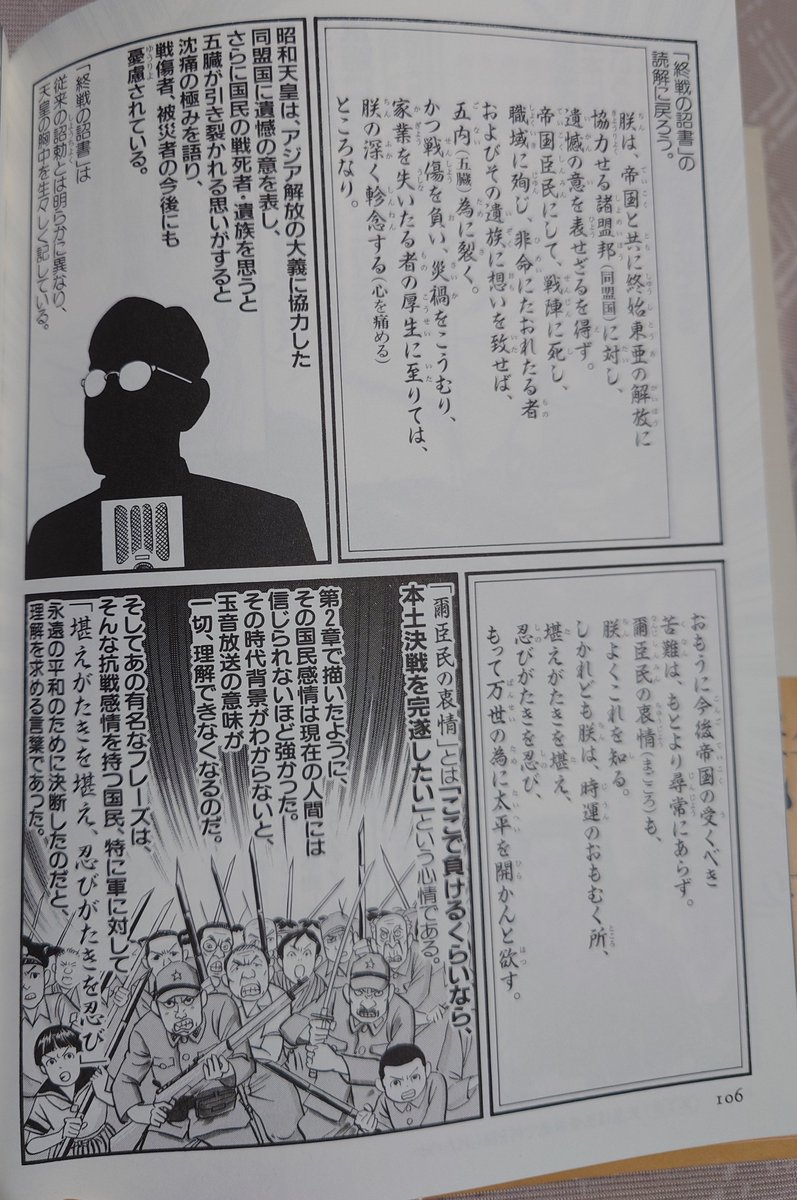 「終戦の詔書」の
読解に戻ろう。
朕は、帝国と共に終始東亜の解放に
協力せる諸盟邦(同盟国)に対し、
遺憾の意を表せざるを得ず。
帝国臣民にして、戦陣に死し、
職域に殉じ、非命にたおれたる者
およびその遺族に想いを致せば、
五内(五臓)為に裂く。
かつ戦傷を負い、災禍をこうむり、
家業を失いたる者の厚生に至りては、
朕の深く軫念する(心を痛める)
ところなり。
昭和天皇は、アジア解放の大義に協力した
同盟国に遺憾の意を表し、
さらに国民の戦死者・遺族を思うと
五臓が引き裂かれる思いがすると
沈痛の極みを語り、
戦傷者、被災者の今後にも
憂慮されている。
「終戦の詔書」は
従来の詔勅とは明らかに異なり、
天皇の胸中を生々しく記している。
おもうに今後帝国の受くべき
苦難は、もとより尋常にあらず。
爾臣民の衷情(まごころ)も、
朕よくこれを知る。
しかれども朕は、時運のおもむく所、
堪えがたきを堪え、
忍びがたきを忍び、
もって万世の為に太平を開かんと欲す。
「爾臣民の衷情」とは「ここで負けるくらいなら、
本土決戦を完遂したい」という心情である。
第2章で描いたように、
その国民感情は現在の人間には
信じられないほど強かった。
その時代背景がわからないと、
玉音放送の意味が
一切、理解できなくなるのだ。
そしてあの有名なフレーズは、
そんな抗戦感情を持つ国民、特に軍に対して
「堪えがたきを堪え、忍びがたきを忍び」
永遠の平和のために決断したのだと、
理解を求める言葉であった。
106